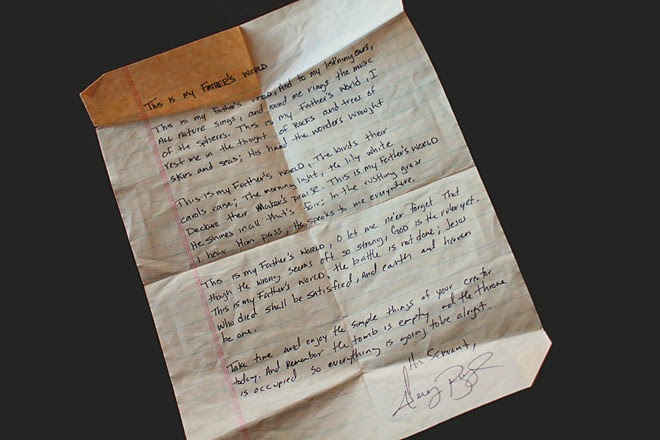 This is my Father's World
This is my Father's World, And to my list'ning ears,
All nature sings, and round me rings the music
of the spheres. This is my Father's World, I
rest me in the thought of Rocks and trees of
skies and seas; His hand the wonders wrought
This is my Father's World, The birds their
carols raise; The morning light, the lily white
Declare their Maker's Praise. This is my Father's World
He shines in all that's fair; In the rustling grass
I hear Him pass, He speaks to me everywhere.
This is my Father's World, O let me ne'er forget That
though the wrong seems oft so strong, God is the ruler yet.
This is my Father's World, the battle is not done; Jesus
who died shall be satisfied, And earth and heaven
be one.
Take time and enjoy the simple things of your creator
today. And Remember the tomb is empty and the throne
is occupied so everything is going to be alright.
His Servant,